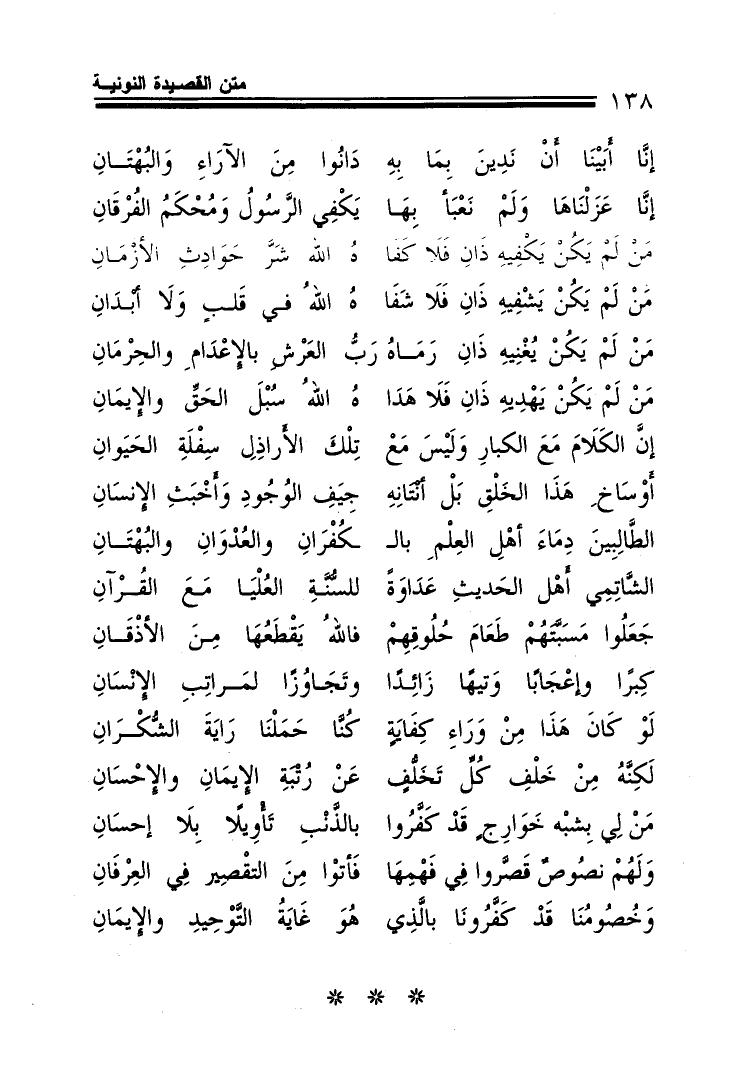 متن القصيدة النونية
١٣٨
إِنَّا أَبَيْنَا أَنْ نَدِينَ بِمَا بِهِ دَانُوا مِنَ الآرَاءِ وَالبُهْتَــانِ
إِنَّا عَزَلْنَاهَا وَلَمْ نَعْبَأْ بِهَـا يَكْفِي الرَّسُولُ وَمُحْكَمُ الفُرْقَانِ
مَنْ لَمْ يَكُنْ يَكْفِيهِ ذَانِ فَلَا كَفَا هُ اللهُ شَرَّ حَوَادِثِ الأَزْمَـانِ
مَنْ لَمْ يَكُنْ يَشْفِيهِ ذَانِ فَلَا شَفَا هُ اللهُ فـي قَلـبٍ وَلَا أَبْدَانِ
مَنْ لَمْ يَكُنْ يُغْنِيهِ ذَانِ رَمَـاهُ رَبُّ العَرْشِ بالإِعْدَامِ والحِرْمَانِ
مَنْ لَمْ يَكُنْ يَهْدِيهِ ذَانِ فَلَا هَدَا هُ اللهُ سُبْلَ الحَقِّ والإِيمَانِ
إِنَّ الكَلَامَ مَعَ الكبارِ وَلَيْسَ مَعْ تِلْكَ الأَرَاذِلِ سِفْلَةِ الحَيَوانِ
أَوْسَاخِ هَذَا الخَلْقِ بَلْ أَنْتَانِهِ جِيَفِ الوُجُودِ وَأَخْبَثِ الإِنسَانِ
الطَّالِبِينَ دِمَاءَ أهْلِ العِلْمِ بالـ ـكُفْرَانِ والعُدْوَانِ والبُهْتَـانِ
الشَّاتِمِي أَهْل الحَديثِ عَدَاوَةً للسُّنَّـةِ العُلْيَـا مَـعَ القُـرْآنِ
جَعَلُوا مَسَبَّتَهُمْ طَعَامَ حُلُوقِهِمْ فاللهُ يَقْطَعُهَا مِـنَ الأَذْقَـانِ
كِبرًا وإعْجَابًا وَتيهًا زَائِـدًا وتَجَـاوُزًا لمَـراتِبِ الإِنْسَانِ
لَوْ كَانَ هَذَا مِنْ وَرَاءِ كِفَايَةٍ كُنَّا حَمَلْنَا رَايَةَ الشُّكْـرَانِ
لَكِنَّهُ مِنْ خَلْفِ كُلِّ تَخَلُّفٍ عَنْ رُتْبَةِ الإِيمَانِ والإِحْسَانِ
مَنْ لِي بِشبْه خَوَارِجٍ قَدْ كَفَّرُوا بالذَّنْبِ تَأْوِيلًا بِلَا إحسَانِ
وَلَهُمْ نصُوصٌ قَصَّروا فِي فَهْمِهَا فَأتوْا مِنَ التقْصِيرِ فِي العِرْفَانِ
وَخُصُومُنَا قَدْ كَفَّرُونَا بالَّذِي هُوَ غَايَةُ التَّوْحِيدِ والإِيمَانِ